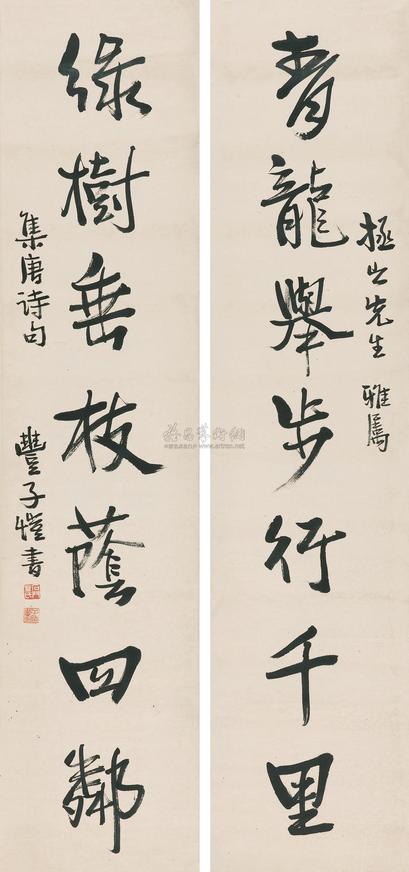 极之先生 雅属
青龍舉步行千里
綠樹垂枝蔭四鄰
集唐诗句
豐子愷書